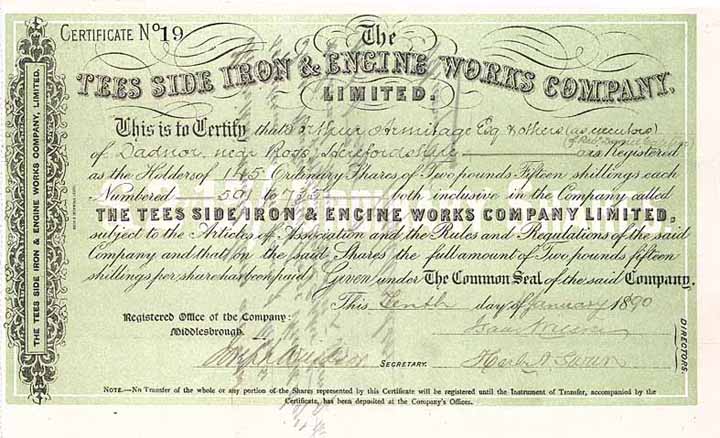 CERTIFICATE No 19
The
TEES SIDE IRON & ENGINE WORKS COMPANY,
LIMITED.
This is to Certify that Arthur Armitage Esq & others (as executors)
of Dadnor, near Ross, Herefordshire are Registered
as the Holders of 145 Ordinary Shares of Two pounds Fifteen shillings each
Numbered 591 to 735 both inclusive in the Company called
THE TEES SIDE IRON & ENGINE WORKS COMPANY LIMITED,
subject to the Articles of Association and the Rules and Regulations of the said
Company and that on the said Shares the full amount of Two pounds fifteen
shillings per share has been paid. Given under The Common Seal of the said Company.
This Tenth day of January 1890
Registered Office of the Company:
Middlesbrough.
SECRETARY.
DIRECTORS.
NOTE.—No Transfer of the whole or any portion of the Shares represented by this Certificate will be registered until the Instrument of Transfer, accompanied by the
Certificate, has been deposited at the Company's Offices.
THE TEES SIDE IRON & ENGINE WORKS COMPANY, LIMITED.